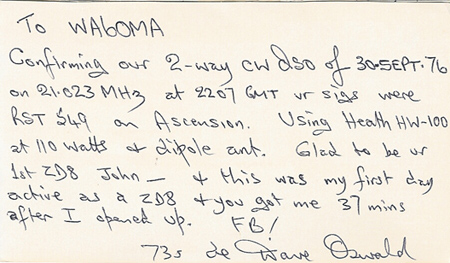 To WA6OMA
Confirming our 2-way cw QSO of 30·SEPT·76
on 21·023 MHz at 2207 GMT ur sigs were
RST 549 on Ascension. Using Heath HW-100
at 110 watts & dipole ant. Glad to be ur
1st ZD8 John — & this was my first day
active as a ZD8 & you got me 37 mins
after I opened up. FB!
73s de Dave Oswald